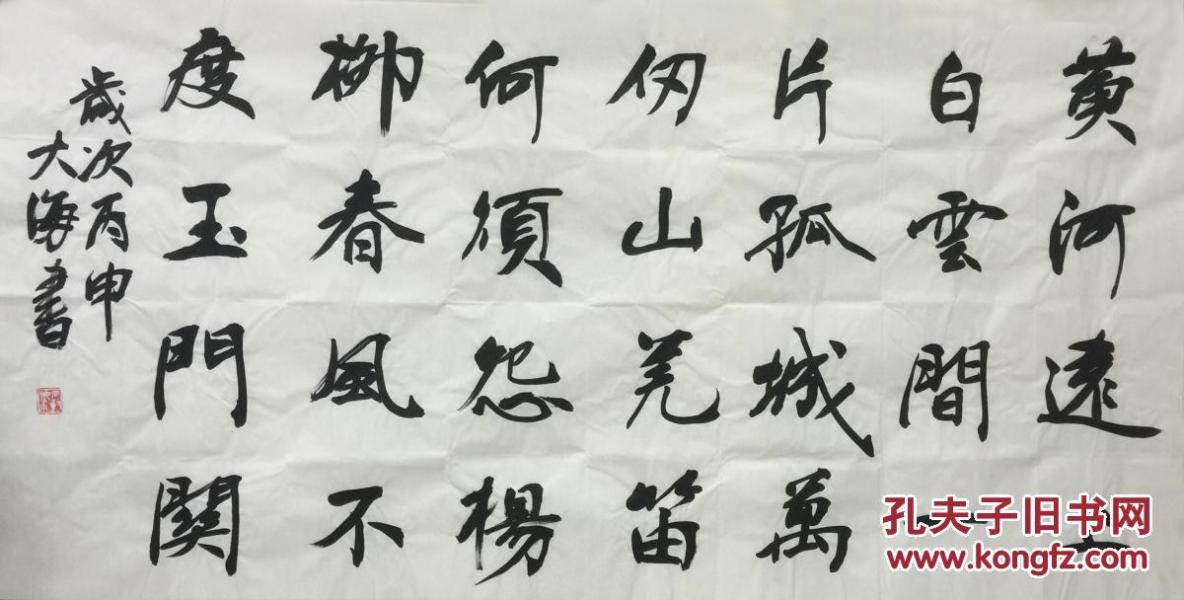 黄河遠上
白雲間一
片孤城萬
仞山羌笛
何須怨楊
柳春風不
度玉門関
歲次丙申
大海書
孔夫子旧书网
www.kongfz.com